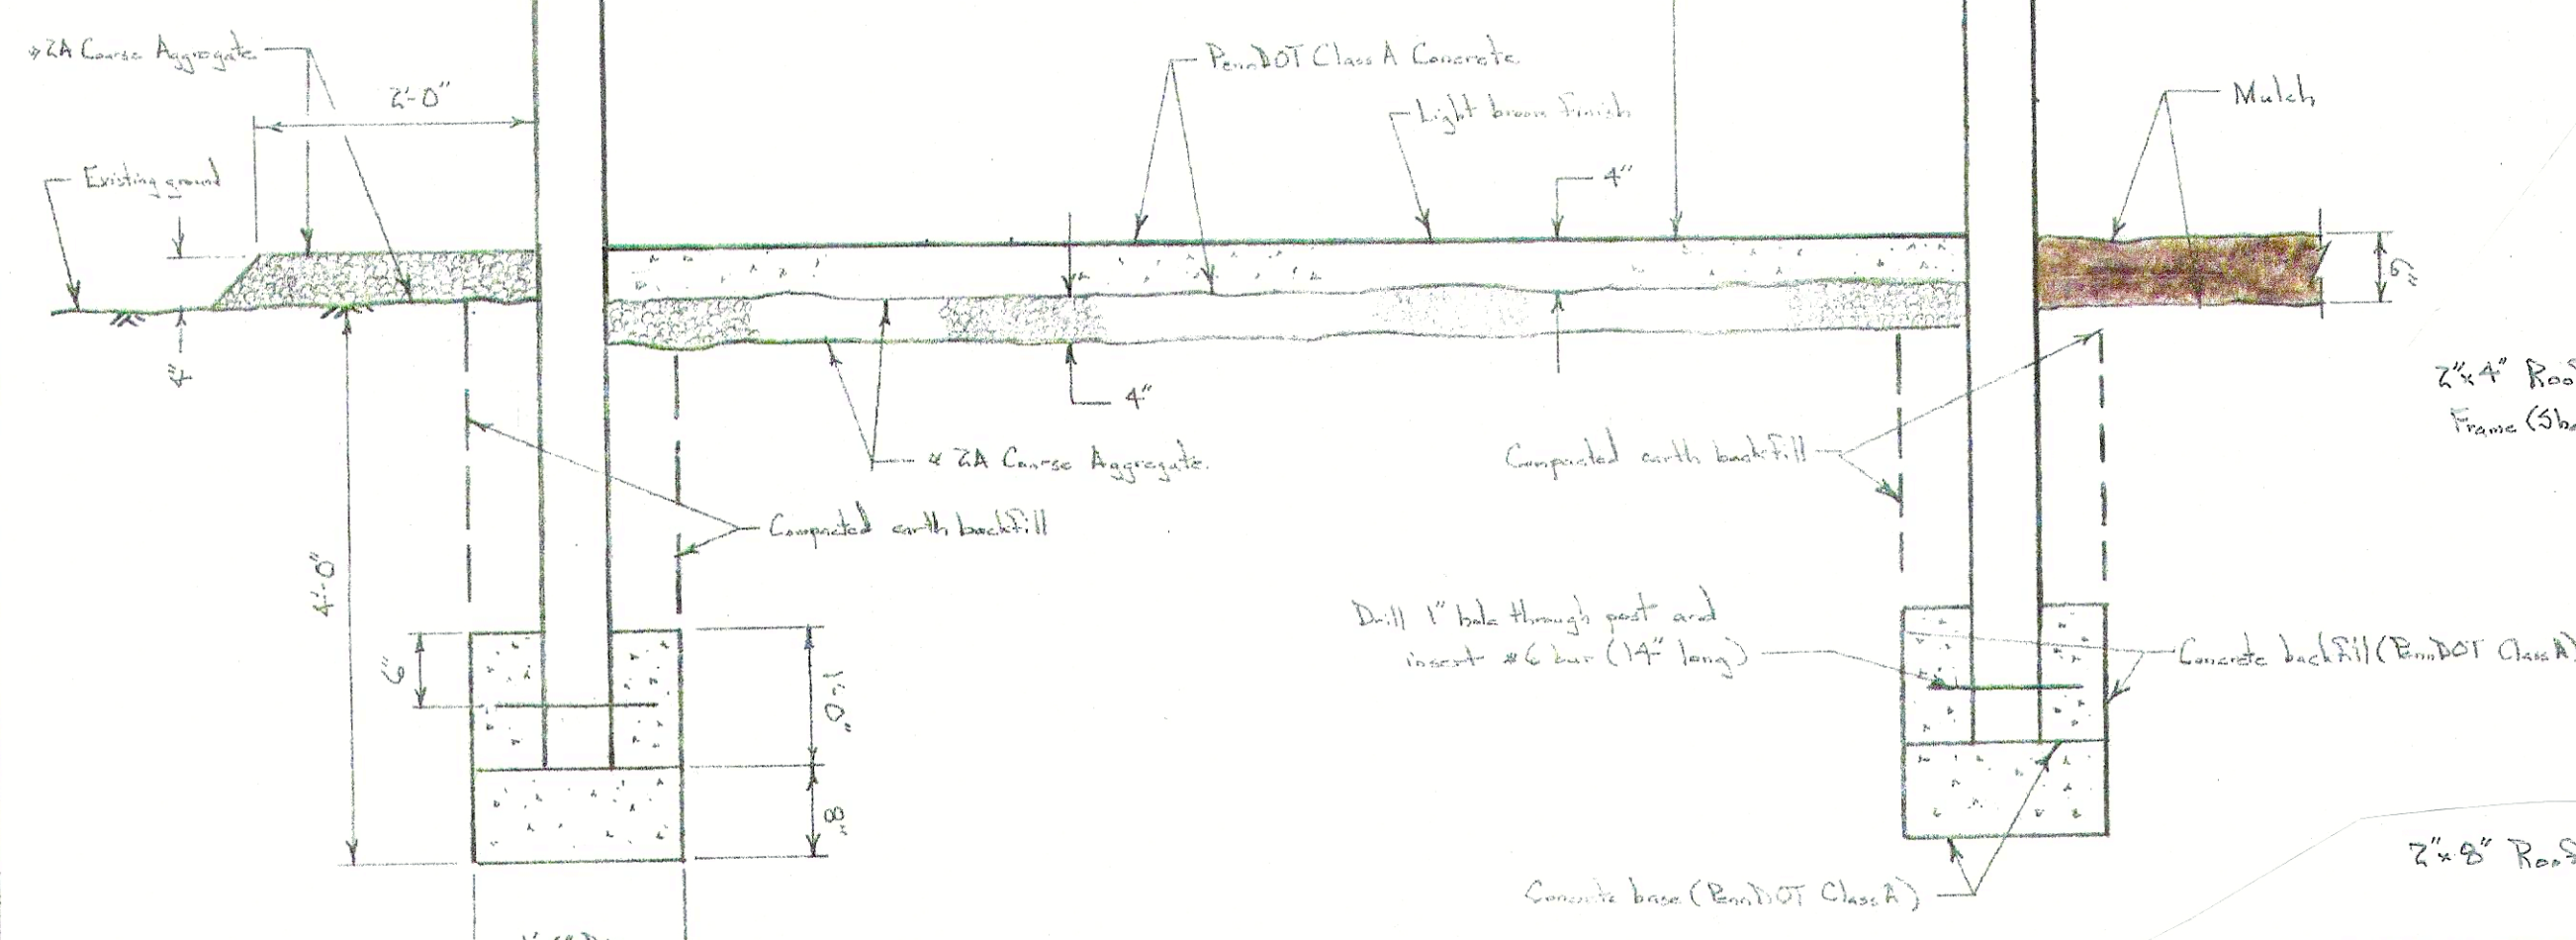 *2A Coarse Aggregate
2'-0"
Existing ground
4"
PennDOT Class A Concrete
Light broom finish
4"
Mulch
6"
4"
* 2A Coarse Aggregate.
Compacted earth backfill
Compacted earth backfill
2"x4" Roof
Frame (Sh
4'-0"
6"
1'-0"
8"
Drill 1" hole through post and
insert #6 bar (14" long)
Concrete backfill (PennDOT Class A)
Concrete base (PennDOT Class A)
2"x8" Roof